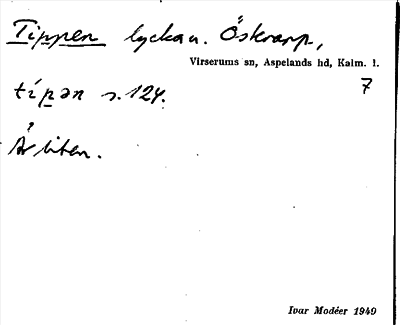 Tippen lycka u. Öskrarp,
Virserums sn, Aspelands hd, Kalm. l.
típən s. 124. 7
Är liten.
Ivar Modéer 1940